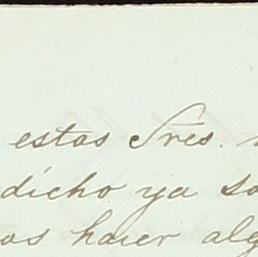 estas Sres.
dicho ya so
os hacer alg